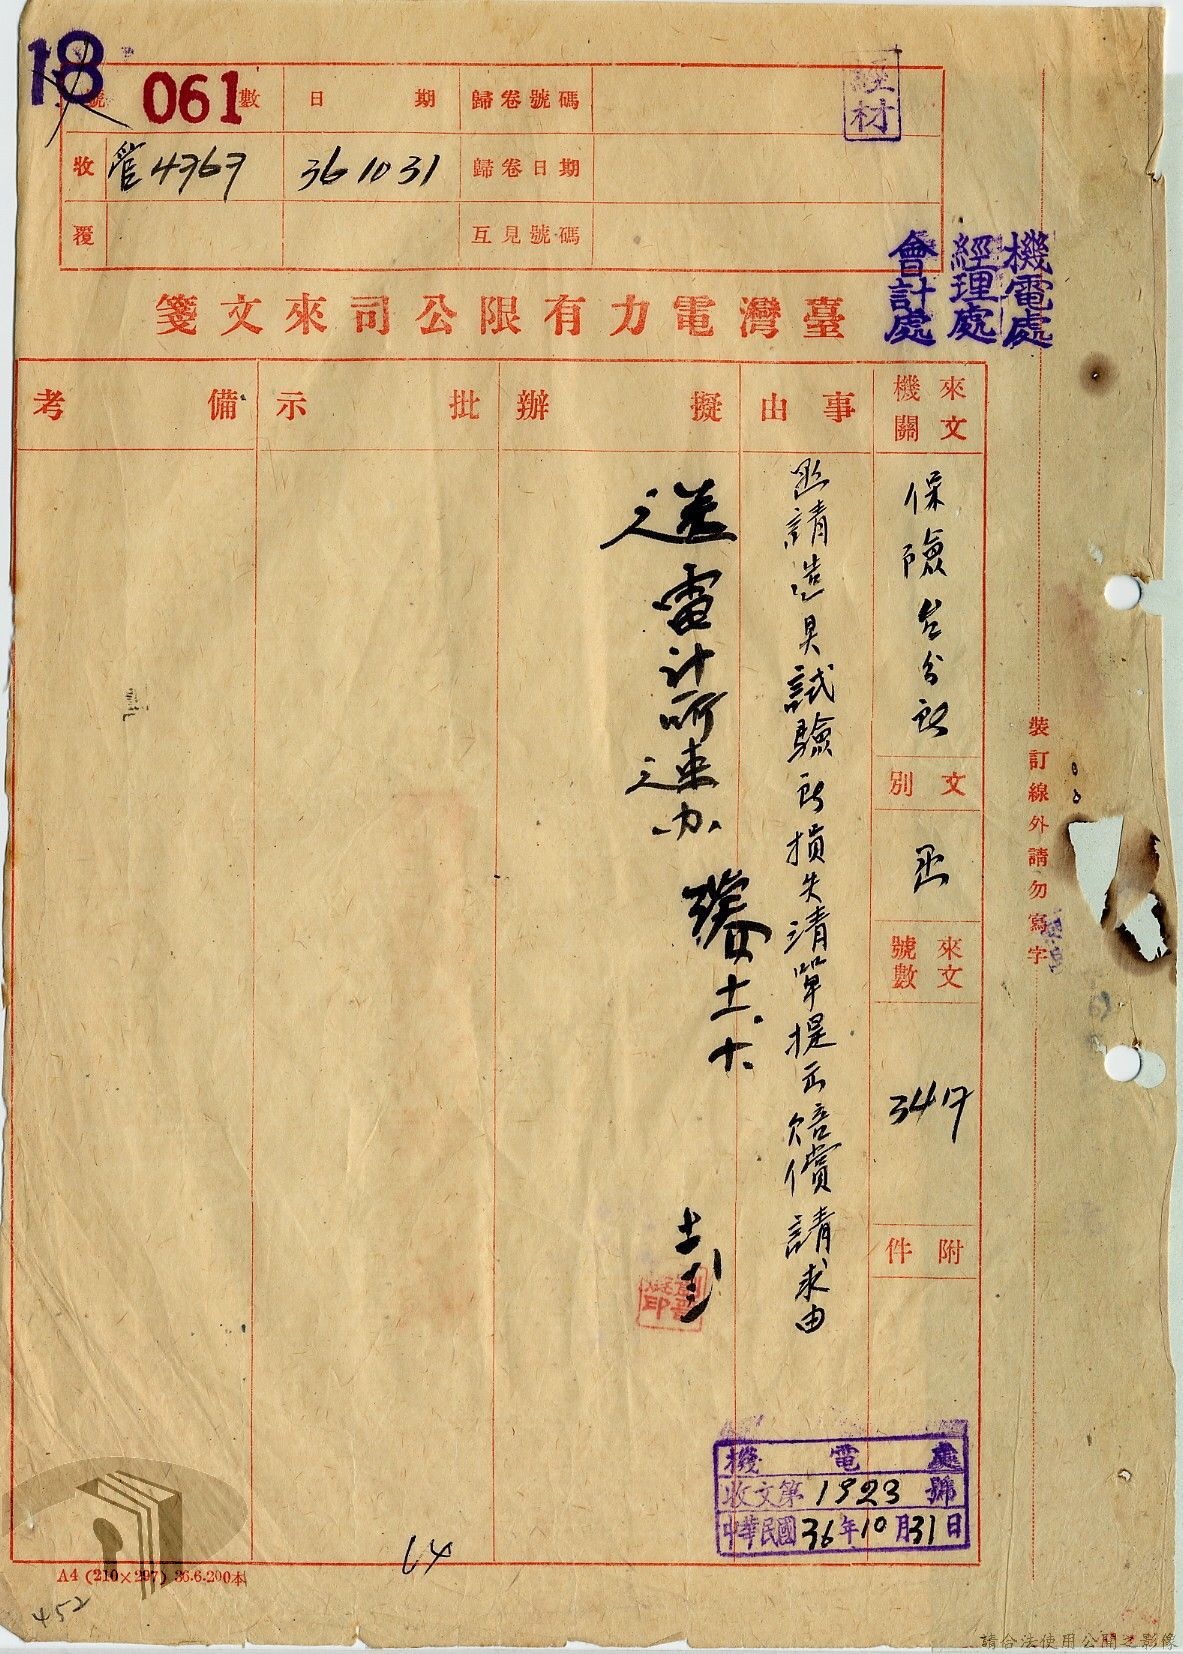 18
號數
061
日期
歸卷號碼
經材
收
管4767
36 10 31
歸卷日期
覆
互見號碼
機電處
經理處
會計處
臺灣電力有限公司來文箋
來文機關
保險台分所
文別
函
來文號數
3417
附件
事由
函請造具試驗所損失清單提示賠償請求由
擬辦
送電計所速办
士、十、
批示
備考
裝訂線外請勿寫字
機電處
收文第1923號
中華民國36年10月31日
14
A4 (210×297) 36.6.200本
452
請合法使用公開之影像